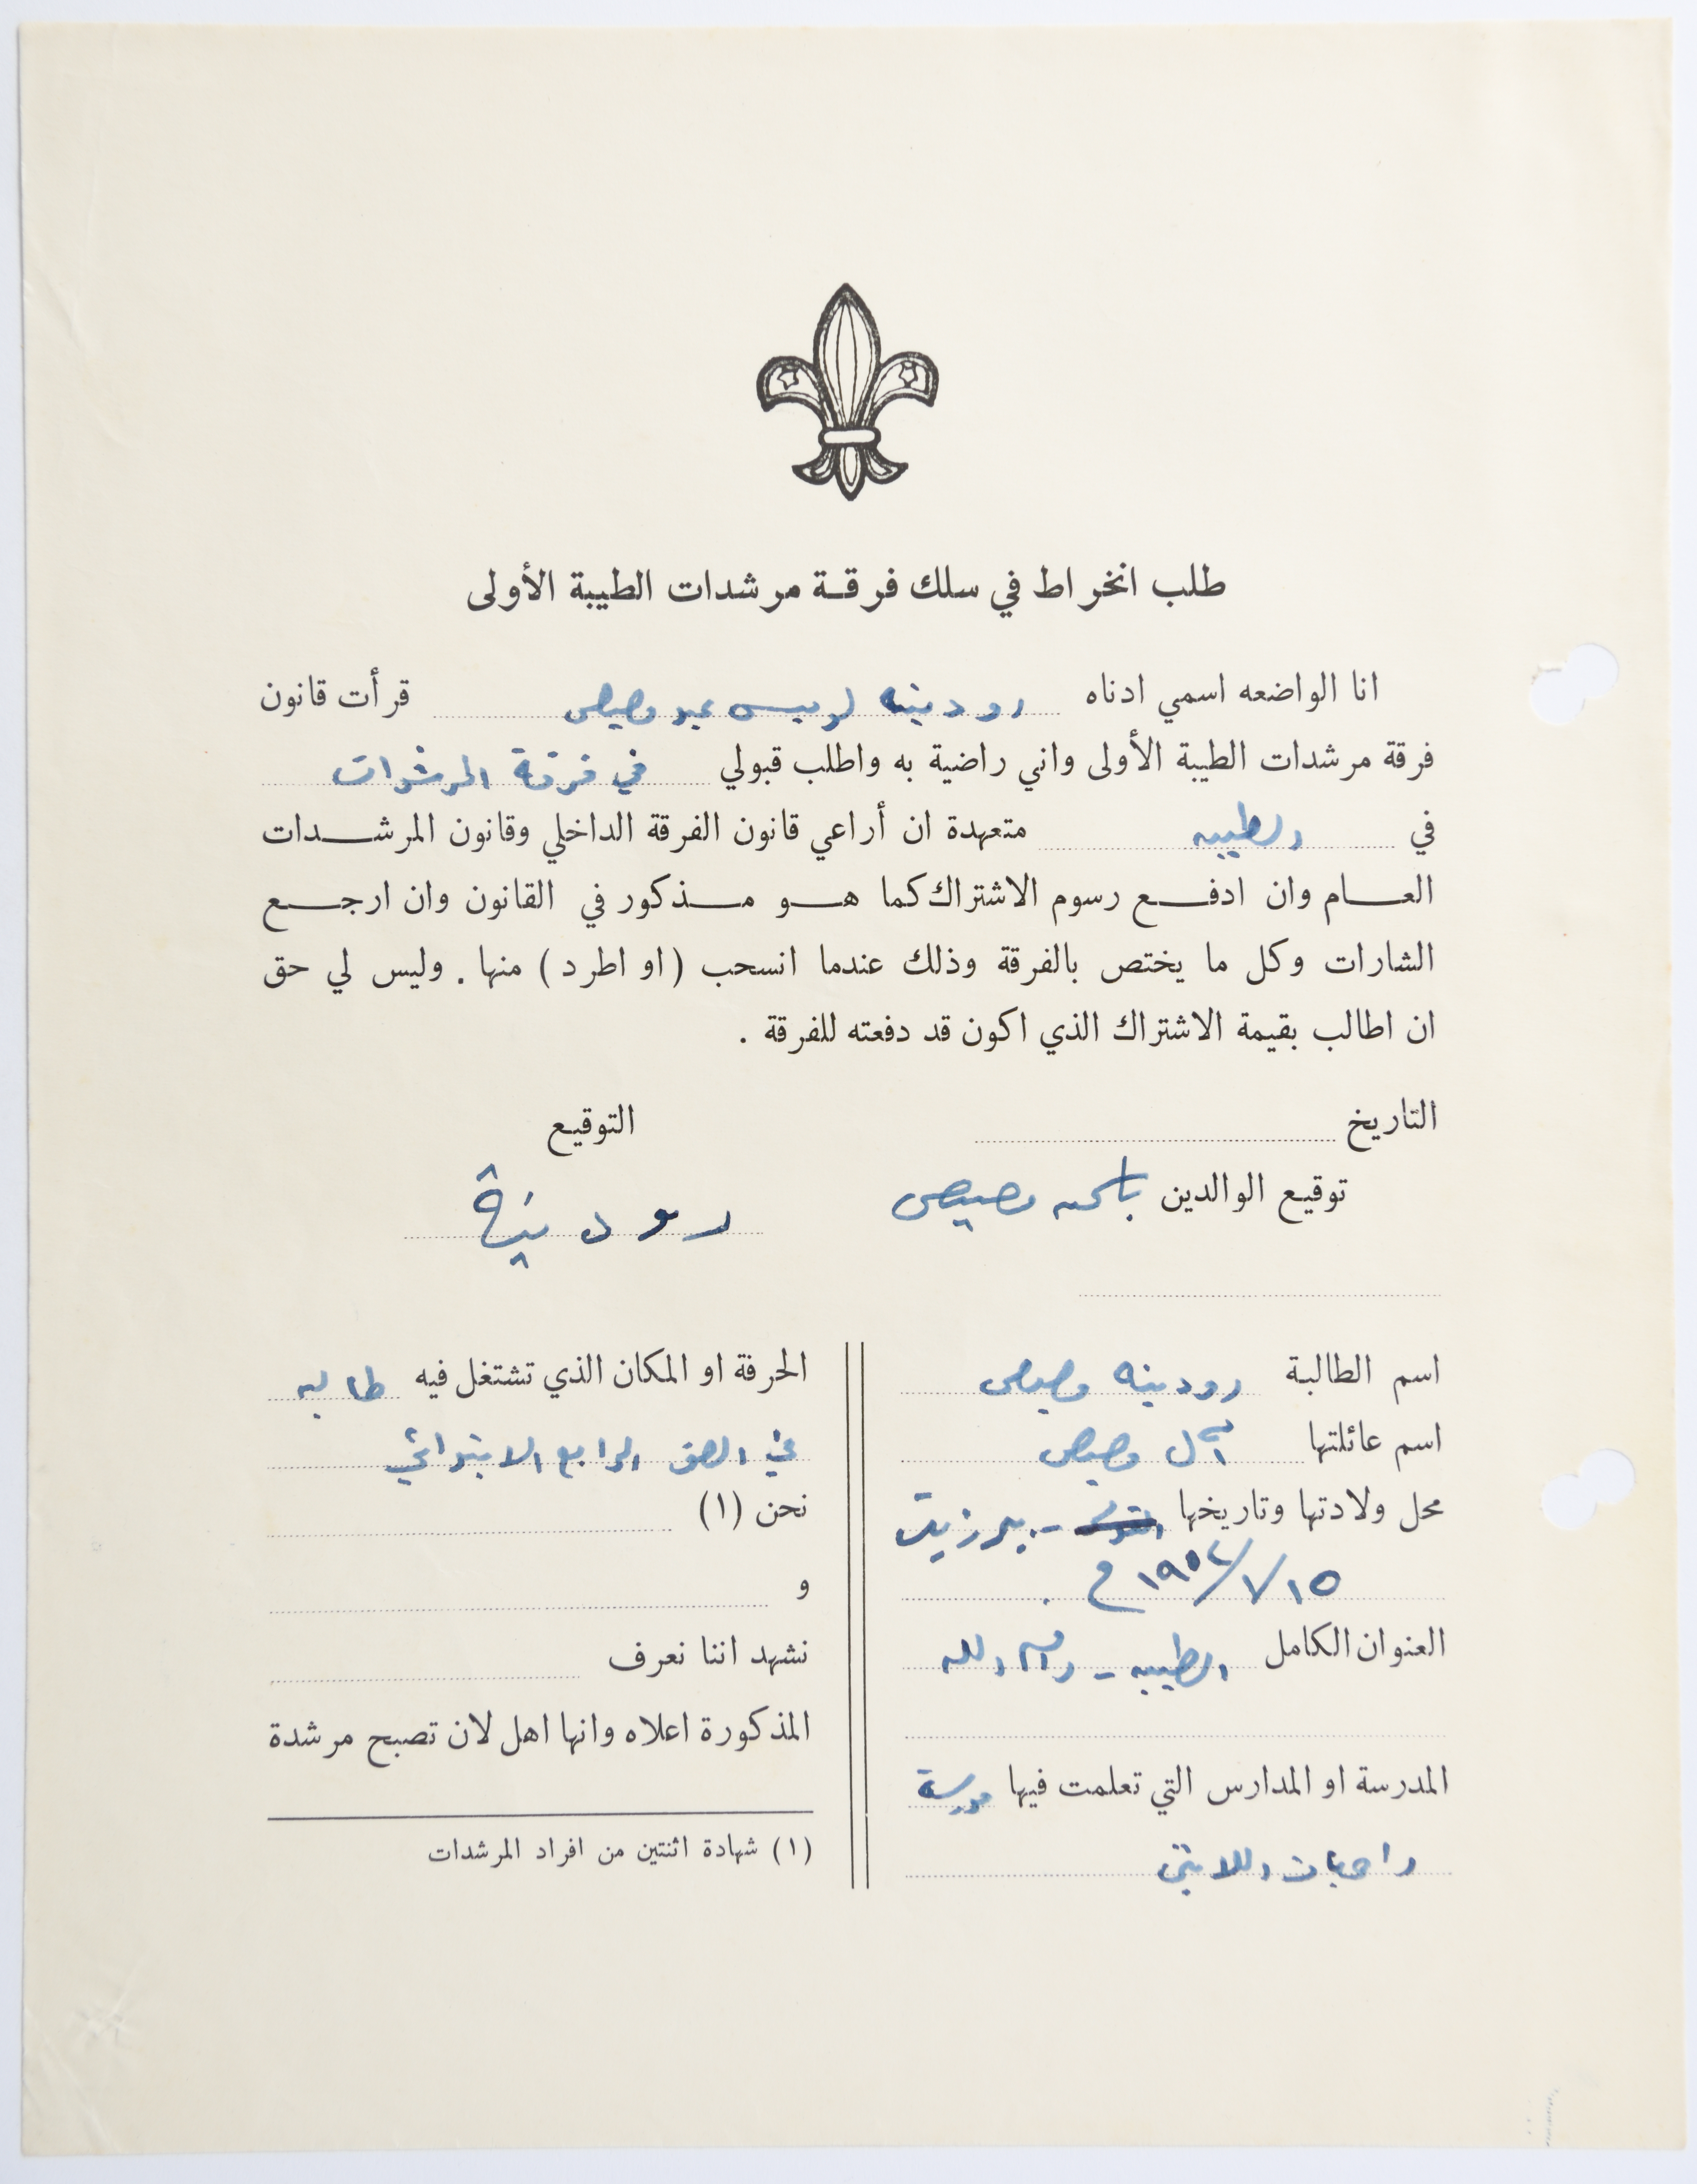 طلب انخراط في سلك فرقة مرشدات الطيبة الأولى
انا الواضعه اسمي ادناه رودينه لويس عيد بصيص قرأت قانون
فرقة مرشدات الطيبة الأولى واني راضية به واطلب قبولي في فرقة المرشدات
في الطيبه متعهدة ان أراعي قانون الفرقة الداخلي وقانون المرشدات
العام وان ادفع رسوم الاشتراك كما هو مذكور في القانون وان ارجع
الشارات وكل ما يختص بالفرقة وذلك عندما انسحب (او اطرد) منها . وليس لي حق
ان اطالب بقيمة الاشتراك الذي اكون قد دفعته للفرقة .
التاريخ
التوقيع
توقيع الوالدين بصيص
رودينة
اسم الطالبة رودينه بصيص
اسم عائلتها آل بصيص
محل ولادتها وتاريخها - بيرزيت
١٥/٧/١٩٥٤ م
العنوان الكامل الطيبه - رام الله
المدرسة او المدارس التي تعلمت فيها مدرسة
راهبات اللاتين
الحرفة او المكان الذي تشتغل فيه طالبه
في الصف الرابع الابتدائي
نحن (١)
و
نشهد اننا نعرف
المذكورة اعلاه وانها اهل لان تصبح مرشدة
(١) شهادة اثنتين من افراد المرشدات